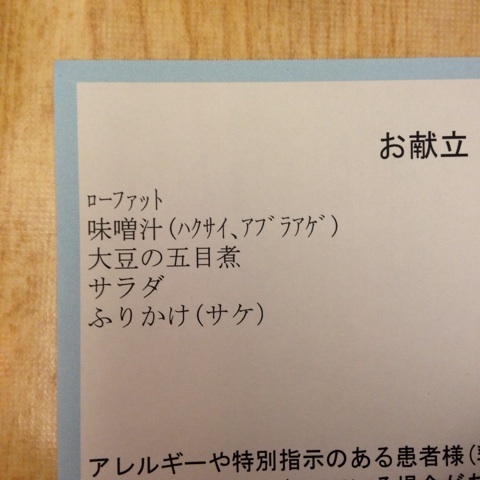 お献立
ﾛｰﾌｧｯﾄ
味噌汁(ﾊｸｻｲ､ｱﾌﾞﾗｱｹﾞ)
大豆の五目煮
サラダ
ふりかけ(サケ)
アレルギーや特別指示のある患者様(